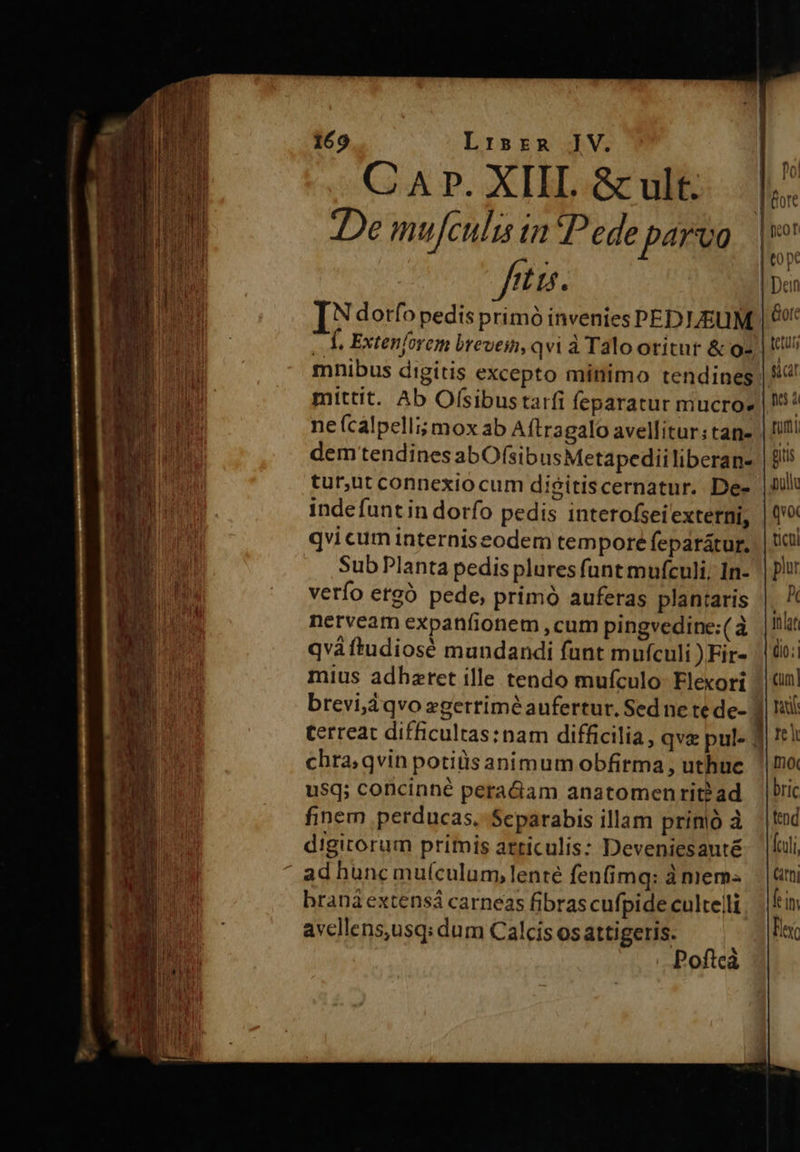 169 LIBER IV.
CAP. XIII. & ult.
De muſculis in Pede parvo
ſitis.
IN dorſo pedis primò invenies PEDIÆUM
ſ. Extenſorem brevem, qvi à Talo oritur & o-
mnibus digitis excepto minimo tendines
mittit. Ab Oſsibus tarſi ſeparatur mucro-
ne ſcalpelli; mox ab Aſtragalo avellitur; tan-
dem tendines ab Oſsibus Metapedii liberan-
tur, ut connexio cum digitis cernatur. De-
inde ſunt in dorſo pedis interoſsei externi,
qvi cum internis eodem tempore ſeparátur.
Sub Planta pedis plures ſunt muſculi. In-
verſo ergò pede, primò auferas plantaris
nerveam expanſionem, cum pingvedine: (à
qvâ ſtudiosè mundandi ſunt muſculi) Fir-
mius adhæret ille tendo muſculo Flexori
brevi, à qvo ægerrimè aufertur. Sed ne te de-
terreat difficultas: nam difficilia, qvæ pul-
chra, qvin potiùs animum obfirma, ut huc
usq; concinnè peractam anatomen ritè ad
finem perducas. Separabis illam primò à
digitorum primis articulis: Devenies autē
ad hunc muſculum, lentè ſenſimq: à mem-
branâ extensâ carneas fibras cuſpide cultelli
avellens, usq: dum Calcis os attigeris.
Poſteà